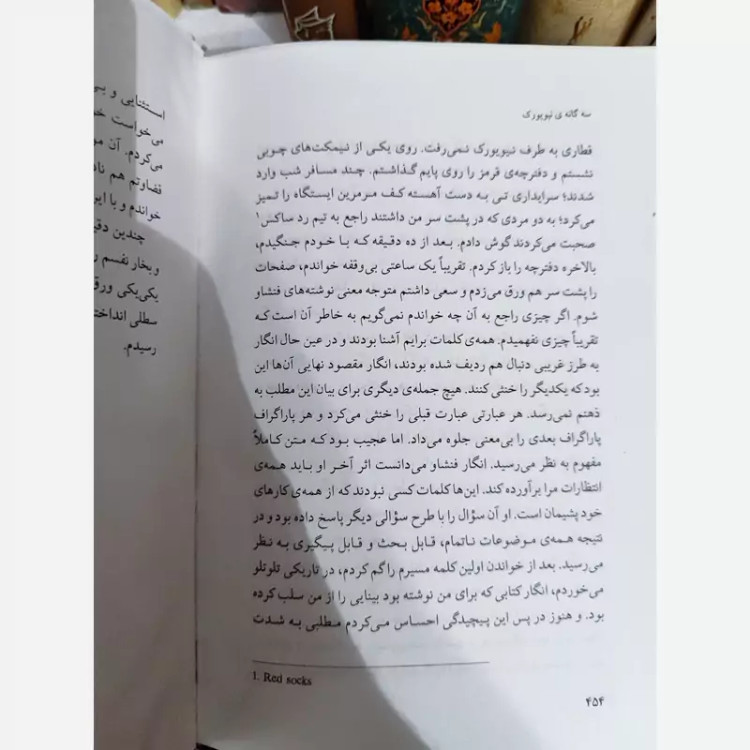 سه گانه ی نیویورک
قطاری به طرف نیویورک نمی‌رفت. روی یکی از نیمکت‌های چوبی
نشستم و دفترچه‌ی قرمز را روی پایم گذاشتم. چند مسافر شب وارد
شدند؛ سرایداری تی به دست آهسته کف مرمرین ایستگاه را تمیز
می‌کرد؛ به دو مردی که در پشت سر من داشتند راجع به تیم رد ساکس۱
صحبت می‌کردند گوش دادم. بعد از ده دقیقه که با خودم جنگیدم،
بالاخره دفترچه را باز کردم. تقریباً یک ساعتی بی‌وقفه خواندم، صفحات
را پشت سر هم ورق می‌زدم و سعی داشتم متوجه معنی نوشته‌های فنشاو
شوم. اگر چیزی راجع به آن چه خواندم نمی‌گویم به خاطر آن است که
تقریباً چیزی نفهمیدم. همه‌ی کلمات برایم آشنا بودند و در عین حال انگار
به طرز غریبی دنبال هم ردیف شده بودند، انگار مقصود نهایی آن‌ها این
بود که یکدیگر را خنثی کنند. هیچ جمله‌ی دیگری برای بیان این مطلب به
ذهنم نمی‌رسد. هر عبارتی عبارت قبلی را خنثی می‌کرد و هر پاراگراف
پاراگراف بعدی را بی‌معنی جلوه می‌داد. اما عجیب بود که متن کاملاً
مفهوم به نظر می‌رسید. انگار فنشاو می‌دانست اثر آخر او باید همه‌ی
انتظارات مرا برآورده کند. این‌ها کلمات کسی نبودند که از همه‌ی کارهای
خود پشیمان است. او آن سؤال را با طرح سؤالی دیگر پاسخ داده بود و در
نتیجه همه‌ی موضوعات ناتمام، قابل بحث و قابل پیگیری به نظر
می‌رسید. بعد از خواندن اولین کلمه مسیرم را گم کردم، در تاریکی تلوتلو
می‌خوردم، انگار کتابی که برای من نوشته بود بینایی را از من سلب کرده
بود. و هنوز در پس این پیچیدگی احساس می‌کردم مطلبی به شدت
1. Red socks
۴۵۴
استثنایی و بی
می‌خواست
می‌کردم. آن
قضاوتم هم
خواندم و با
چندین
و بخار نفسم
یکی‌یکی ورق
سطلی انداختم
رسیدم.